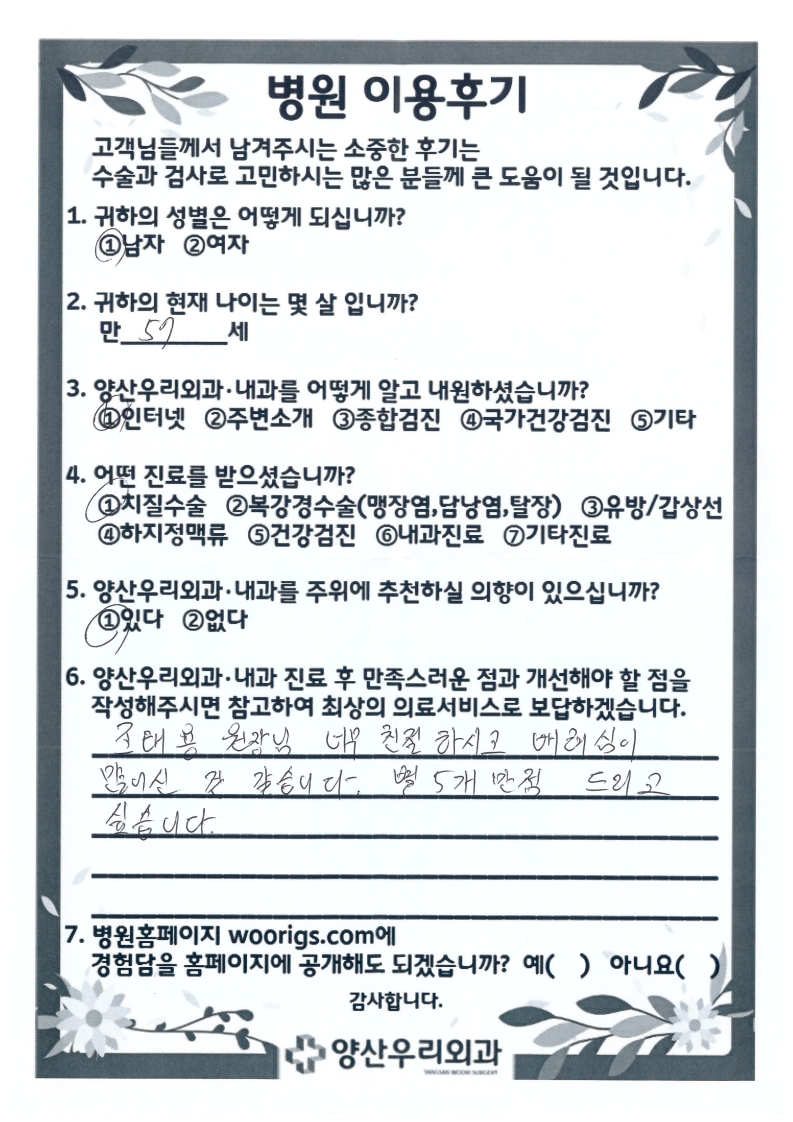 병원 이용후기
고객님들께서 남겨주시는 소중한 후기는
수술과 검사로 고민하시는 많은 분들께 큰 도움이 될 것입니다.
1. 귀하의 성별은 어떻게 되십니까?
①남자 ②여자
2. 귀하의 현재 나이는 몇 살 입니까?
만 57 세
3. 양산우리외과·내과를 어떻게 알고 내원하셨습니까?
①인터넷 ②주변소개 ③종합검진 ④국가건강검진 ⑤기타
4. 어떤 진료를 받으셨습니까?
①치질수술 ②복강경수술(맹장염,담낭염,탈장) ③유방/갑상선
④하지정맥류 ⑤건강검진 ⑥내과진료 ⑦기타진료
5. 양산우리외과·내과를 주위에 추천하실 의향이 있으십니까?
①있다 ②없다
6. 양산우리외과·내과 진료 후 만족스러운 점과 개선해야 할 점을
작성해주시면 참고하여 최상의 의료서비스로 보답하겠습니다.
조태용 원장님 너무 친절하시고 배려심이
많으신 것 같습니다. 별 5개 만점 드리고
싶습니다.
7. 병원홈페이지 woorigs.com에
경험담을 홈페이지에 공개해도 되겠습니까? 예( ) 아니요( )
감사합니다.
양산우리외과
YANGSAN WOORI SURGERY